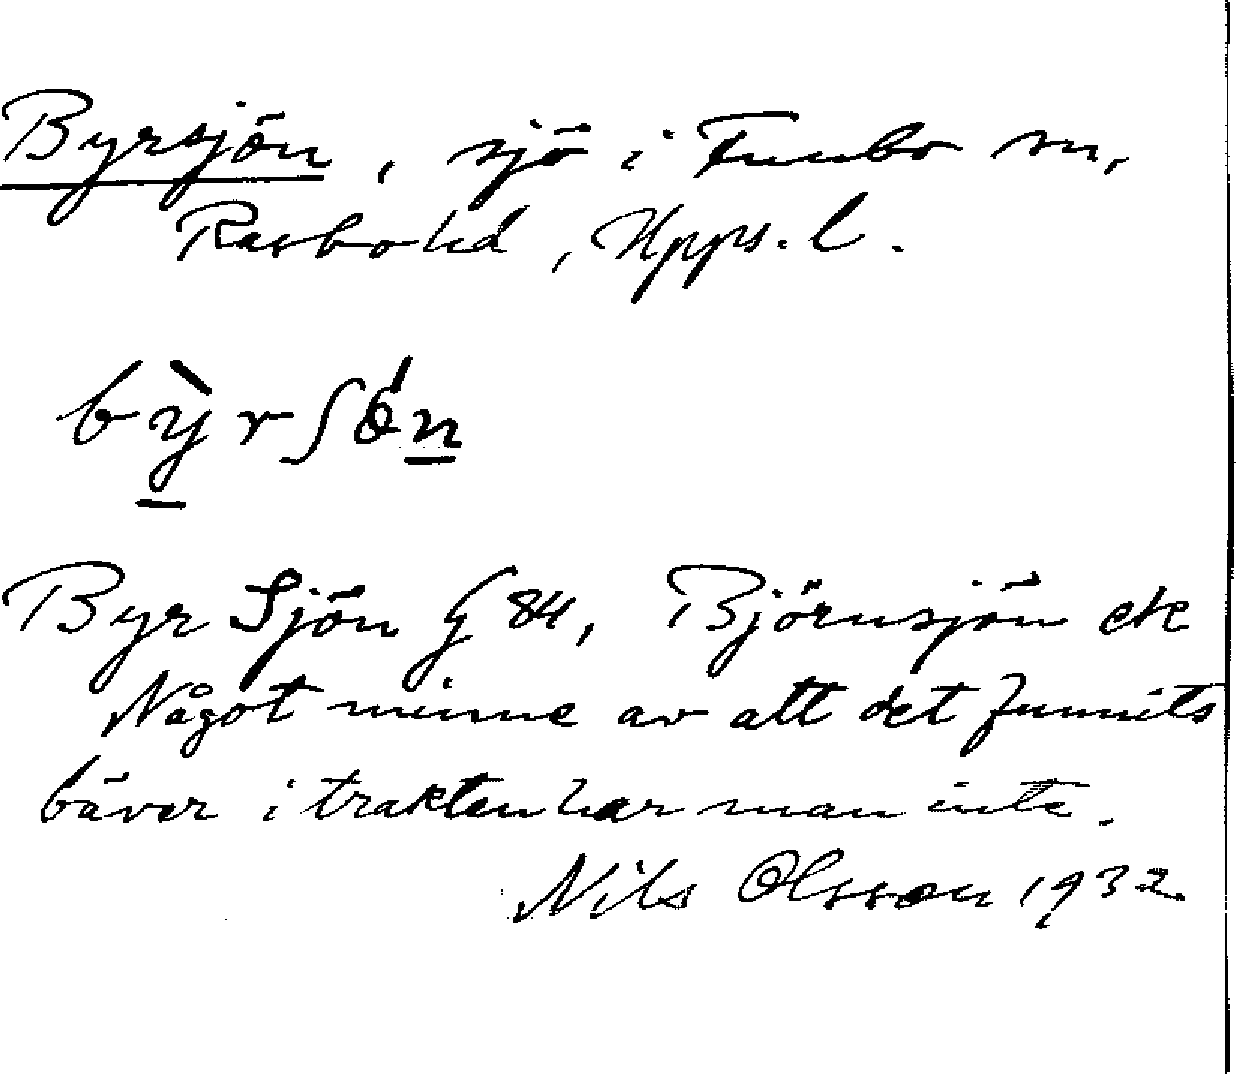 Byrsjön, sjö i Funbo sn,
Rasbo hd, Upps. l.
bỳrʃɵ́n
Byr Sjön G 84, Björnsjön ek
Något minne av att det funnits
bäver i trakten har man inte.
Nils Olsson 1932